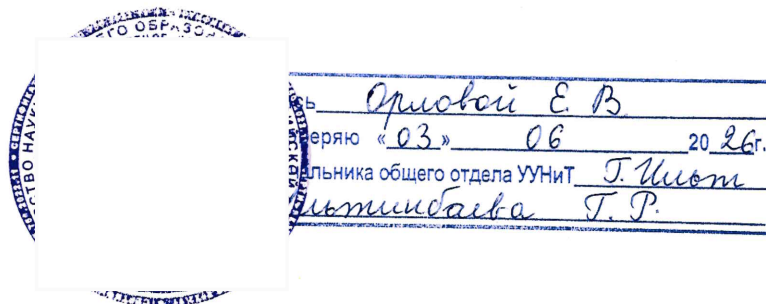 ГО ОБРАЗО
СТВО НАУК
ь Орловой Е. В.
веряю «03» 06 2026г.
альника общего отдела УУНиТ Г. Ильт
льтинбаева Г. Р.